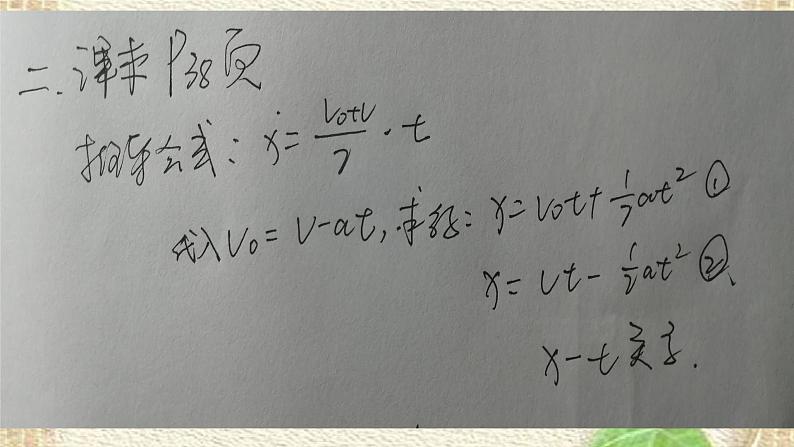 二.课本P38页
推导公式:x=\frac{v_0+v}{2}·t
代入v_0=v-at,求得:x=v_0t+\frac{1}{2}at^2 ①
x=vt-\frac{1}{2}at^2 ②
x-t关系.